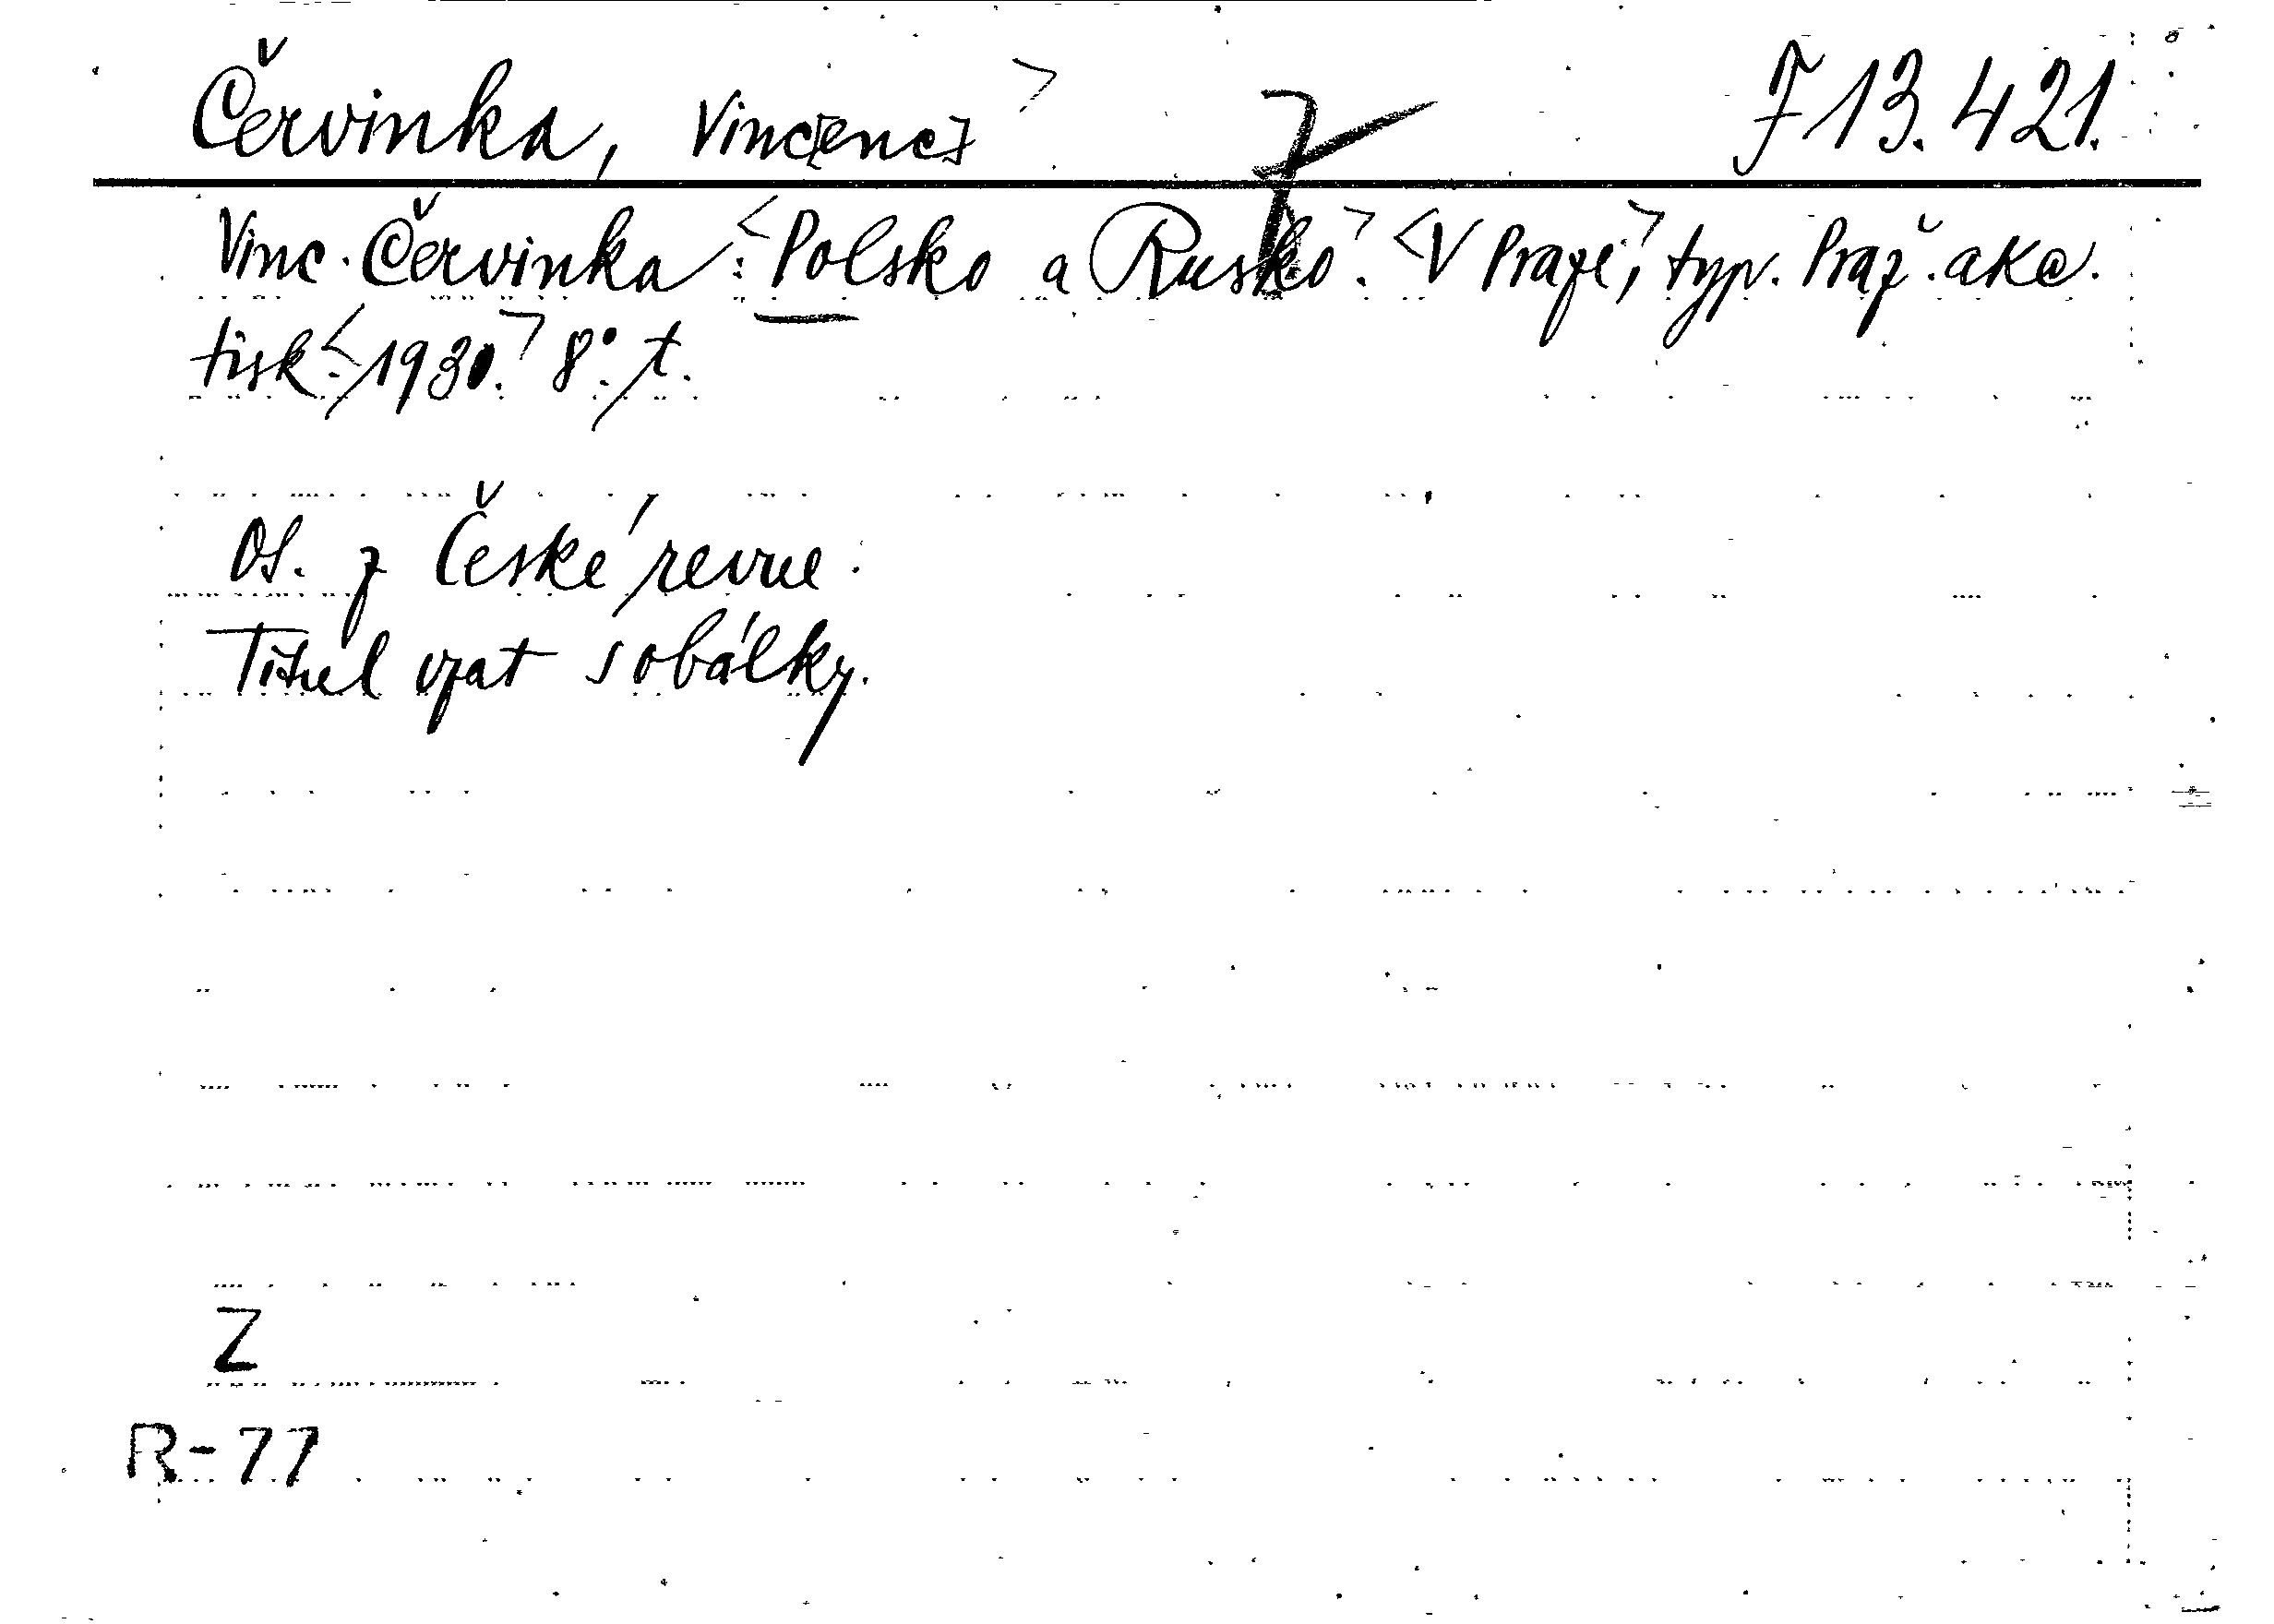 Červinka, Vinc[enc] F 13.421.
Vinc. Červinka: Polsko a Rusko. V Praze, typ. Praž. akc.
tisk. 1930. 8°. t.
Ot. z České revue.
Titul vzat s obálky.
Z
R-77